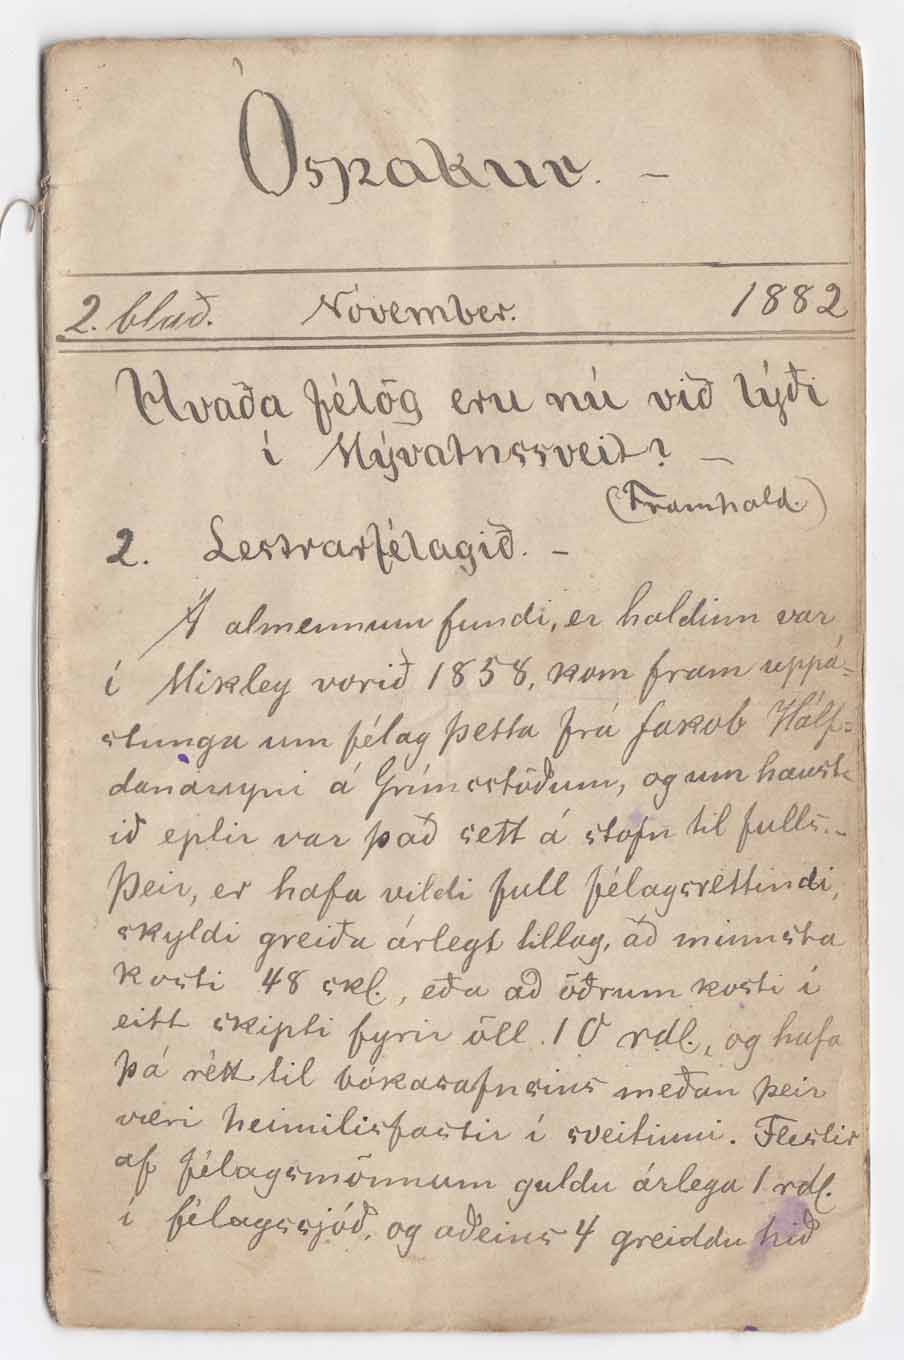 Óspakur. –
2. blað. November. 1882
Hvaða félög eru nú við lýði
í Mývatnssveit? –
(Framhald.)
2. Lestrarfélagið. –
Á almennum fundi, er haldinn var
í Mikley vorið 1858, kom fram uppá-
stunga um félag þetta frá Jakob Hálf-
danarsyni á Grímsstöðum, og um haust-
ið eptir var það sett á stofn til fulls. –
Þeir, er hafa vildi full félagsréttindi,
skyldi greiða árlegt tillag, að minnsta
kosti 48 skl., eða að öðrum kosti í
eitt skipti fyrir öll 10 rdl., og hafa
þá rétt til bókasafnsins meðan þeir
væri heimilisfastir í sveitinni. Flestir
af félagsmönnum guldu árlega 1 rdl.
í félagssjóð, og aðeins 4 greiddu hið